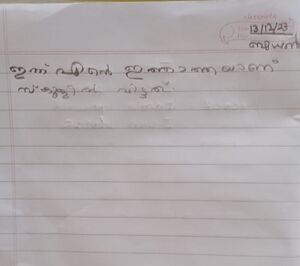 13/12/23
ബുധൻ
ഇന്ന് എൻ്റെ ഇത്താത്തയാണ്
സ്കൂളിൽ വിട്ടത്